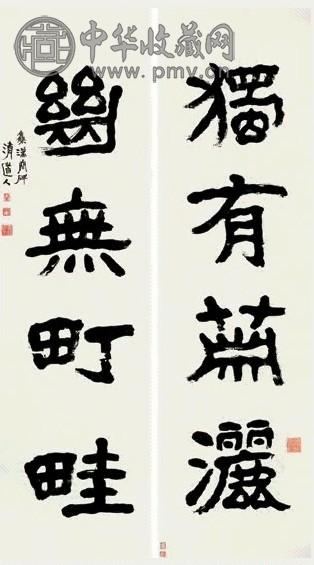 中华收藏网
www.pmv.cn
獨有蕭灑
無町畦
集漢碑
清道人